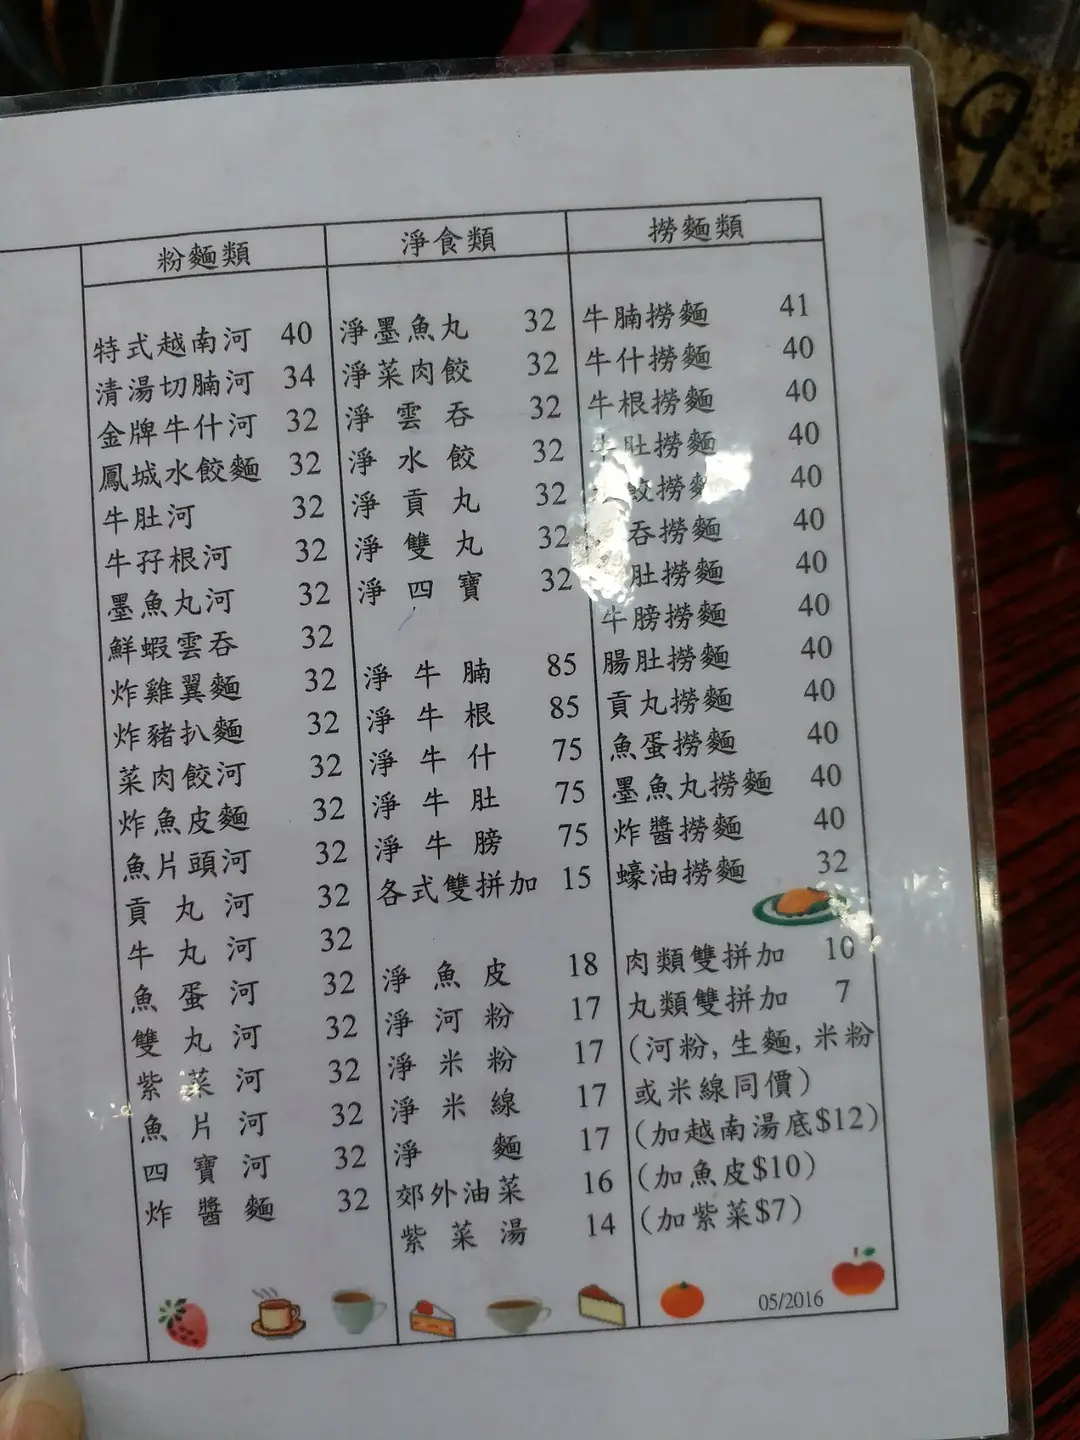 粉麵類
特式越南河 40
清湯切腩河 34
金牌牛什河 32
鳳城水餃麵 32
牛肚河 32
牛孖根河 32
墨魚丸河 32
鮮蝦雲吞 32
炸雞翼麵 32
炸豬扒麵 32
菜肉餃河 32
炸魚皮麵 32
魚片頭河 32
貢丸河 32
牛丸河 32
魚蛋河 32
雙丸河 32
紫菜河 32
魚片河 32
四寶河 32
炸醬麵 32
淨食類
淨墨魚丸 32
淨菜肉餃 32
淨雲吞 32
淨水餃 32
淨貢丸 32
淨雙丸 32
淨四寶 32
淨牛腩 85
淨牛根 85
淨牛什 75
淨牛肚 75
淨牛膀 75
各式雙拼加 15
淨魚皮 18
淨河粉 17
淨米粉 17
淨米線 17
淨麵 17
郊外油菜 16
紫菜湯 14
撈麵類
牛腩撈麵 41
牛什撈麵 40
牛根撈麵 40
牛肚撈麵 40
餃撈麵 40
吞撈麵 40
肚撈麵 40
牛膀撈麵 40
腸肚撈麵 40
貢丸撈麵 40
魚蛋撈麵 40
墨魚丸撈麵 40
炸醬撈麵 40
蠔油撈麵 32
肉類雙拼加 10
丸類雙拼加 7
(河粉, 生麵, 米粉
或米線同價)
(加越南湯底$12)
(加魚皮$10)
(加紫菜$7)
05/2016
9